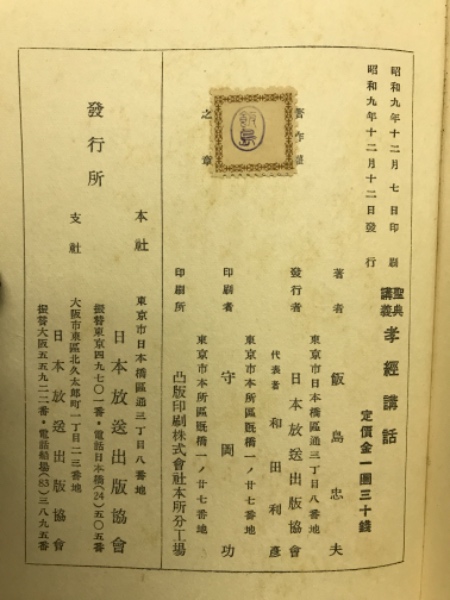 昭和九年十二月七日印刷
昭和九年十二月十二日發行
聖典講義 孝經講話
定價金一圓三十錢
著作權
之章
飯島
著者 飯島忠夫
東京市日本橋區通三丁目八番地
發行者 日本放送出版協會
代表者 和田利彥
東京市本所區厩橋一ノ廿七番地
印刷者 守岡功
東京市本所區厩橋一ノ廿七番地
印刷所 凸版印刷株式會社本所分工場
發行所
本社 東京市日本橋區通三丁目八番地
日本放送出版協會
振替東京四九七〇一番・電話日本橋(24)五〇五番
支社 大阪市東區北久太郎町一丁目二三番地
日本放送出版協會
振替大阪五五九二二番・電話船場(83)三八九五番